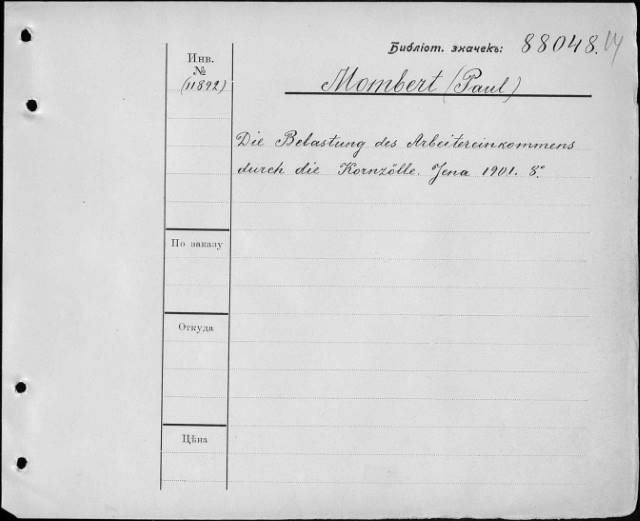 Библіот. значекъ: 88048.
Инв.
№
(11892)
Mombert (Paul)
Die Belastung des Arbeitereinkommens
durch die Kornzölle. Jena 1901. 8º
По заказу
Откуда
Цѣна